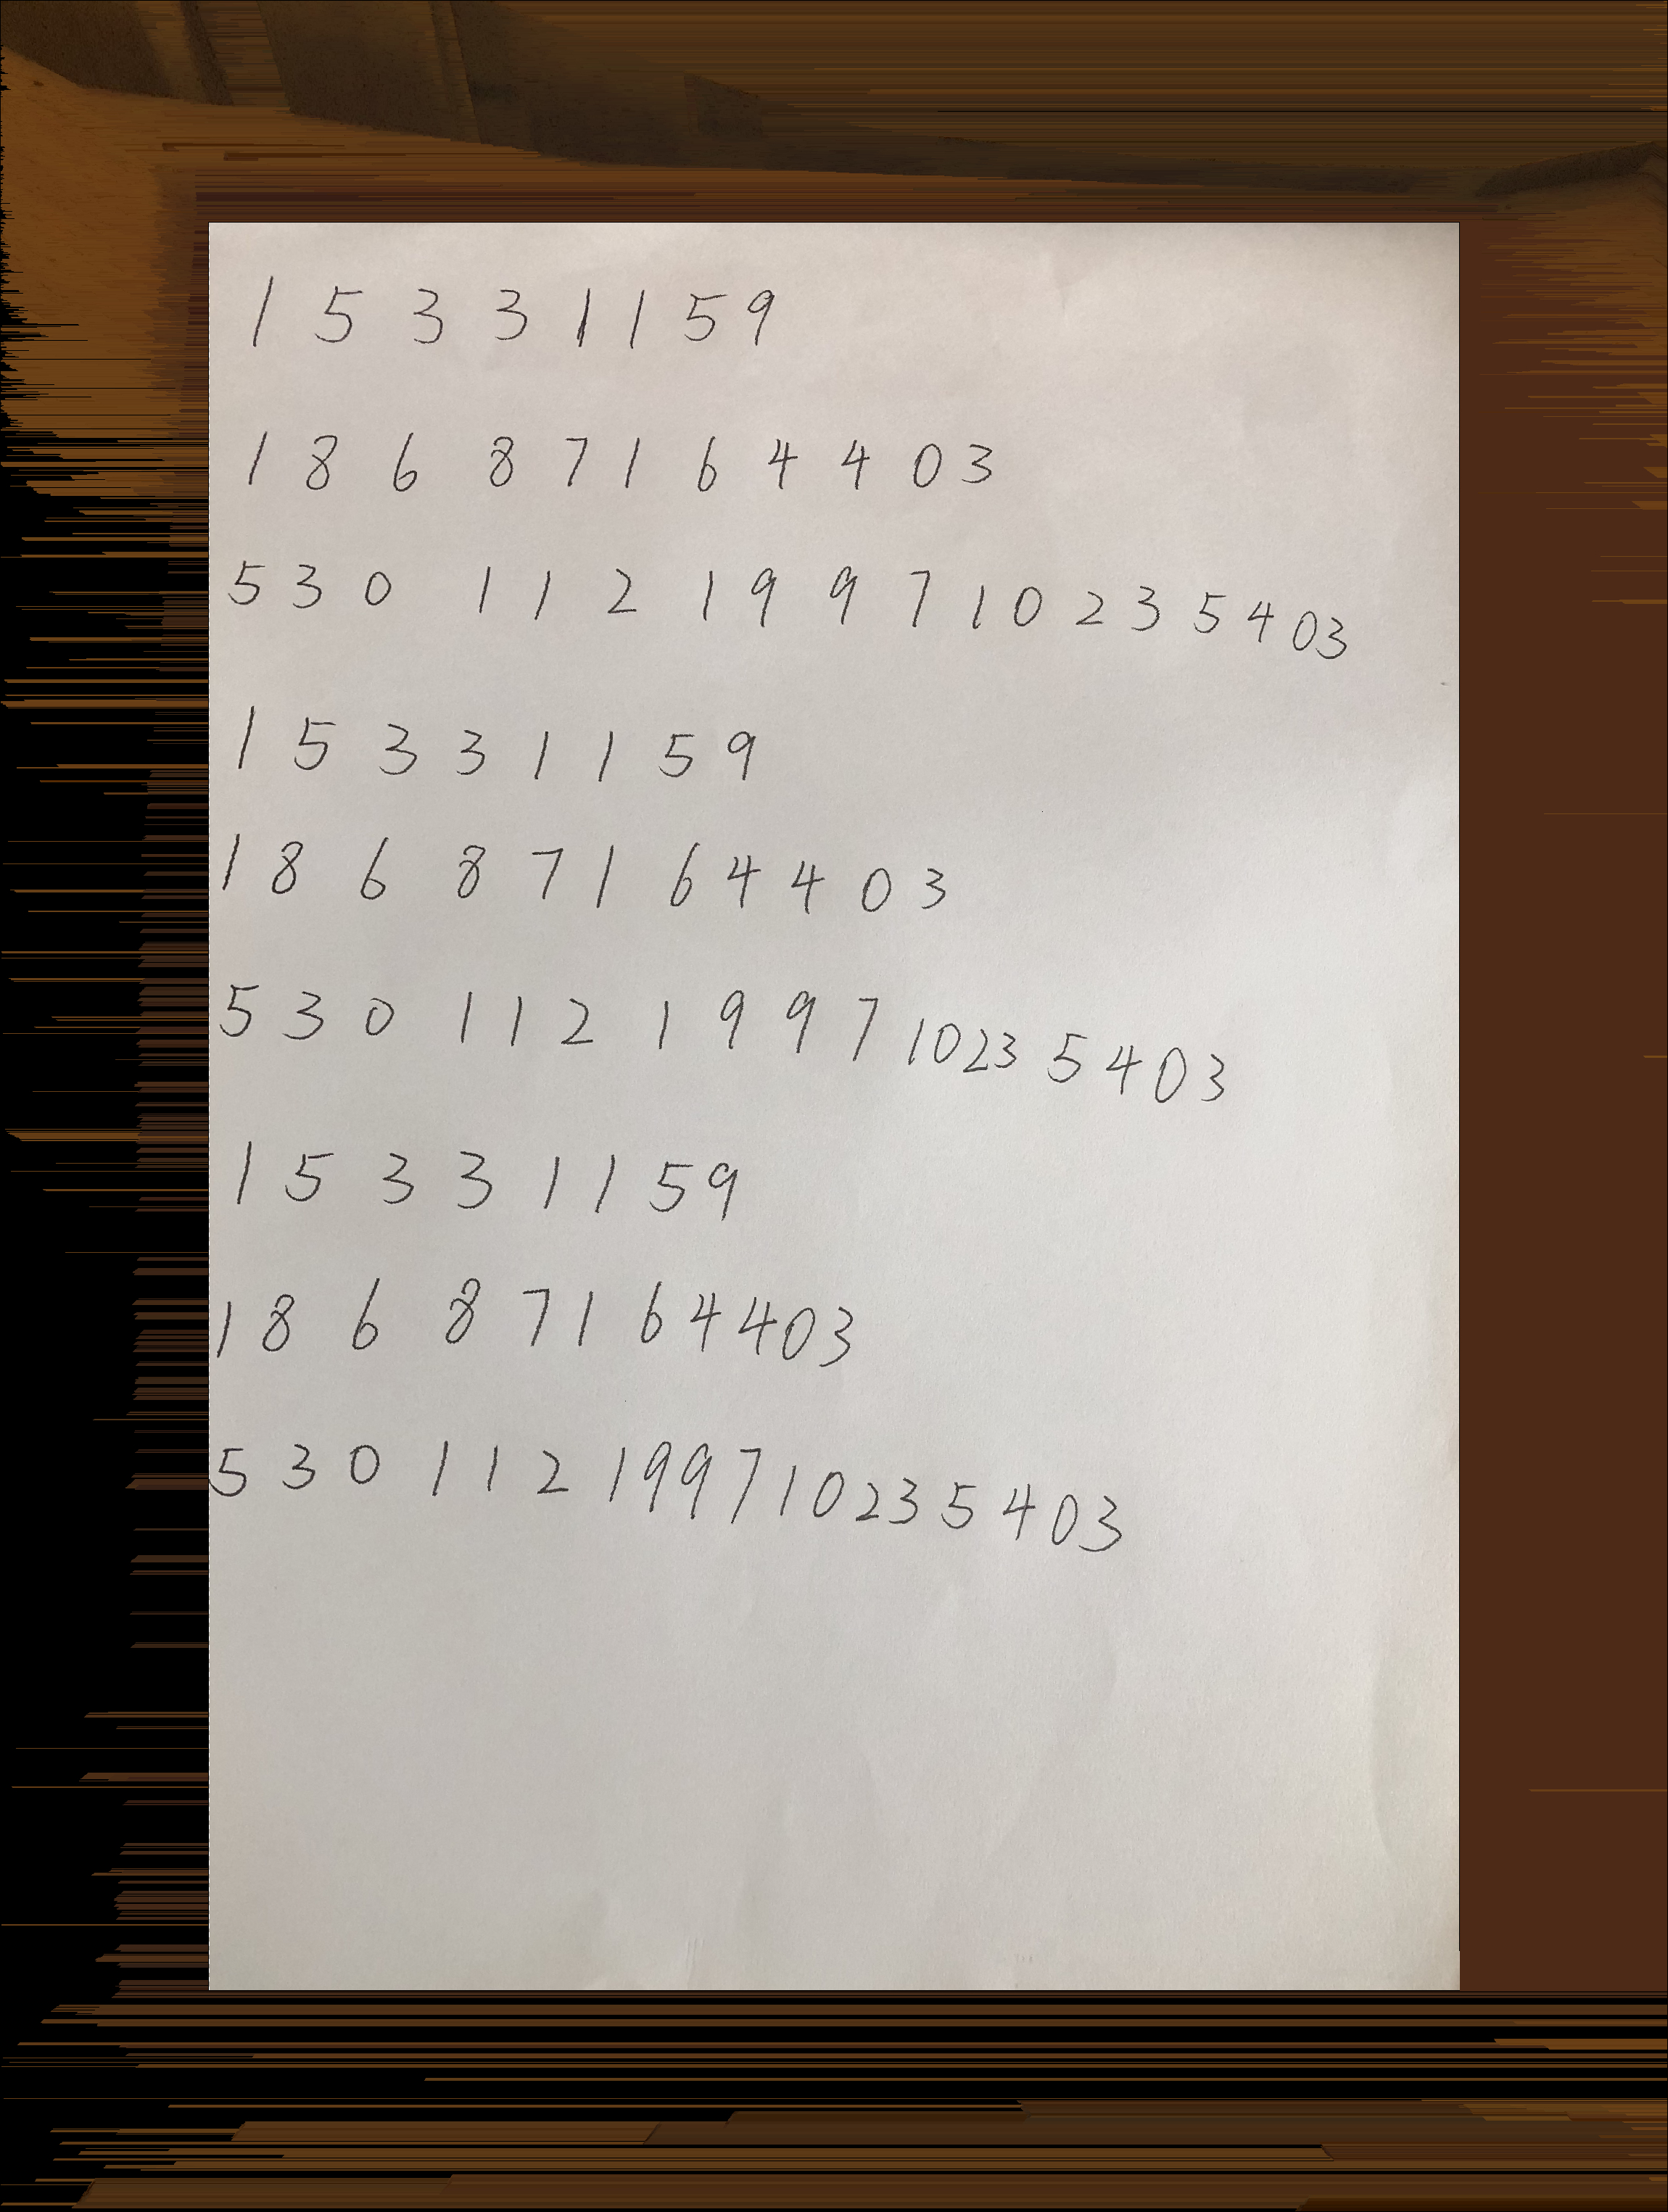 1 5 3 3 1 1 5 9
1 8 6 8 7 1 6 4 4 0 3
5 3 0 1 1 2 1 9 9 7 1 0 2 3 5 4 0 3
1 5 3 3 1 1 5 9
1 8 6 8 7 1 6 4 4 0 3
5 3 0 1 1 2 1 9 9 7 1 0 2 3 5 4 0 3
1 5 3 3 1 1 5 9
1 8 6 8 7 1 6 4 4 0 3
5 3 0 1 1 2 1 9 9 7 1 0 2 3 5 4 0 3